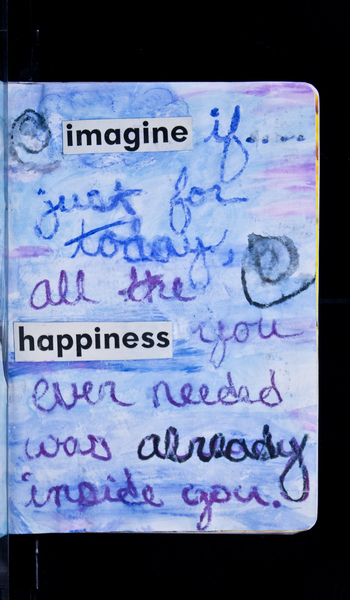 imagine if....
just for
today,
all the
happiness you
ever needed
was already
inside you.